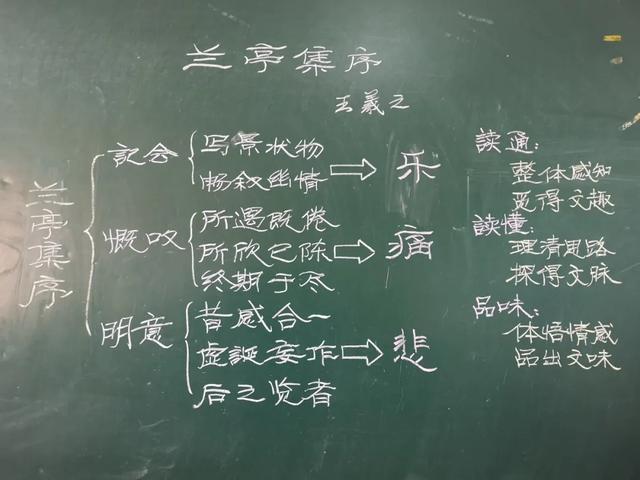 兰亭集序
王羲之
兰亭集序
記会
写景状物
畅叙幽情
乐
慨叹
所遇既倦
所欣已陈
终期于尽
痛
明意
昔感合一
虚誕妄作
后之览者
悲
读通：
整体感知
觅得文趣
读懂：
理清思路
探得文脉
品味：
体悟情感
品出文味